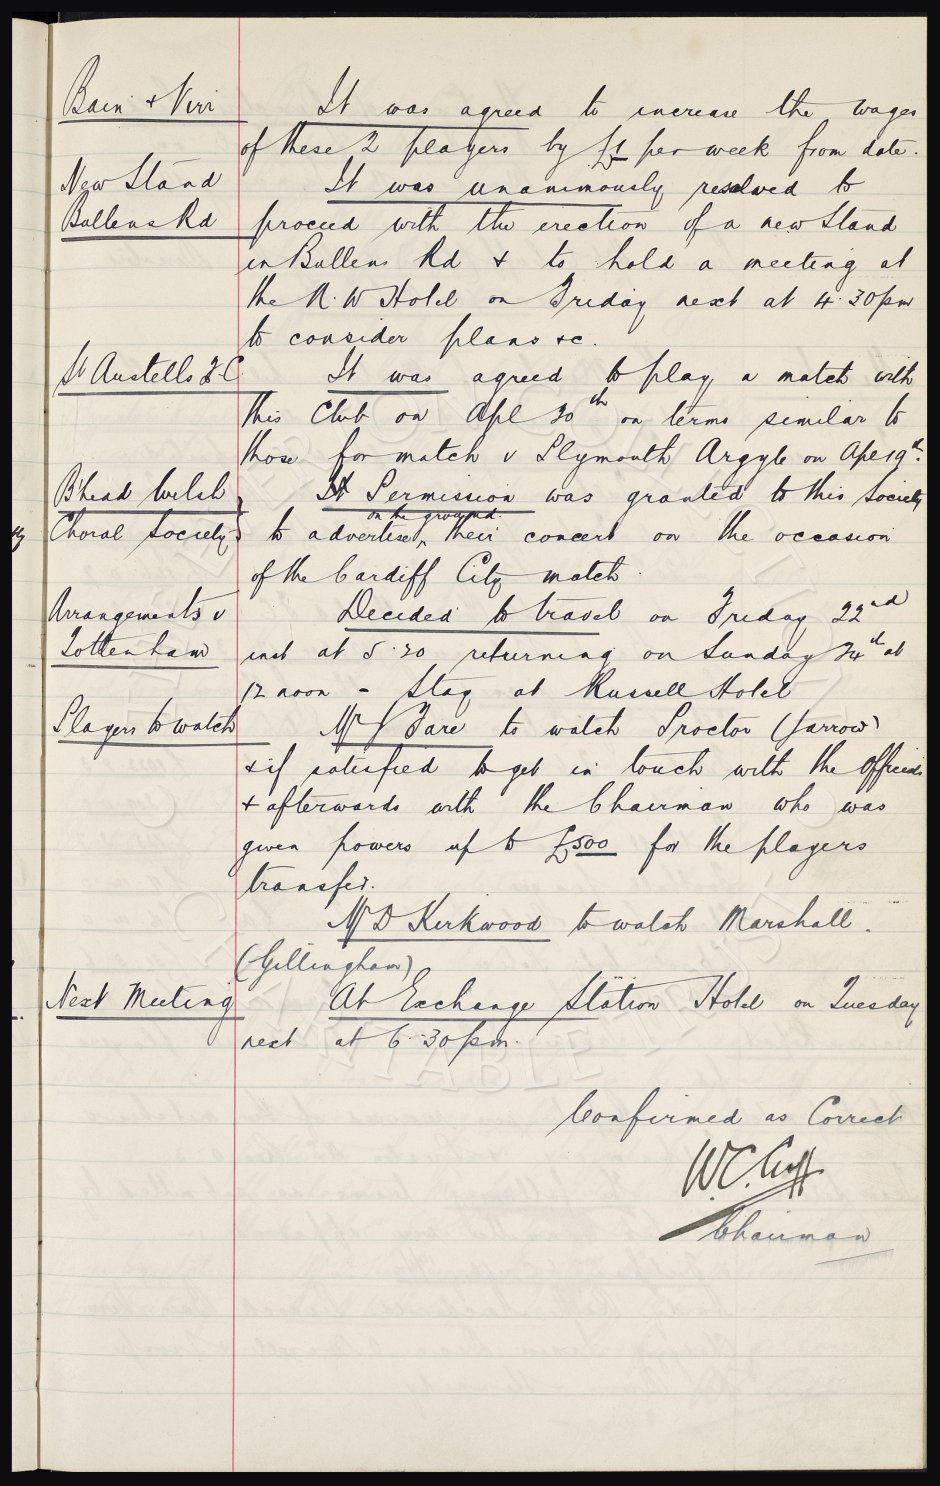 Bain + Virr It was agreed to increase the wages
of these 2 players by £1 per week from date.
New Stand It was unanimously resolved to
Bullens Rd proceed with the erection of a new Stand
in Bullens Rd + to hold a meeting at
the N.W Hotel on Friday next at 4.30pm
to consider plans &c.
St Austells F.C. It was agreed to play a match with
this Club on Apl 30th on terms similar to
those for match v Plymouth Argyle on Apl 19th.
B'head Welsh Permission was granted to this Society
Choral Society to advertise on the ground their concert on the occasion
of the Cardiff City match.
Arrangements v Decided to travel on Friday 22nd
Tottenham inst at 5.20 returning on Sunday 24th at
12 noon - Stay at Russell Hotel
Players to watch Mr J Fare to watch Proctor (Jarrow)
+ if satisfied to get in touch with the Officials
+ afterwards with the Chairman who was
given powers up to £500 for the players
transfer.
Mr D Kirkwood to watch Marshall.
(Gillingham)
Next Meeting At Exchange Station Hotel on Tuesday
next at 6.30pm.
Confirmed as Correct
W.C. Cuff
Chairman